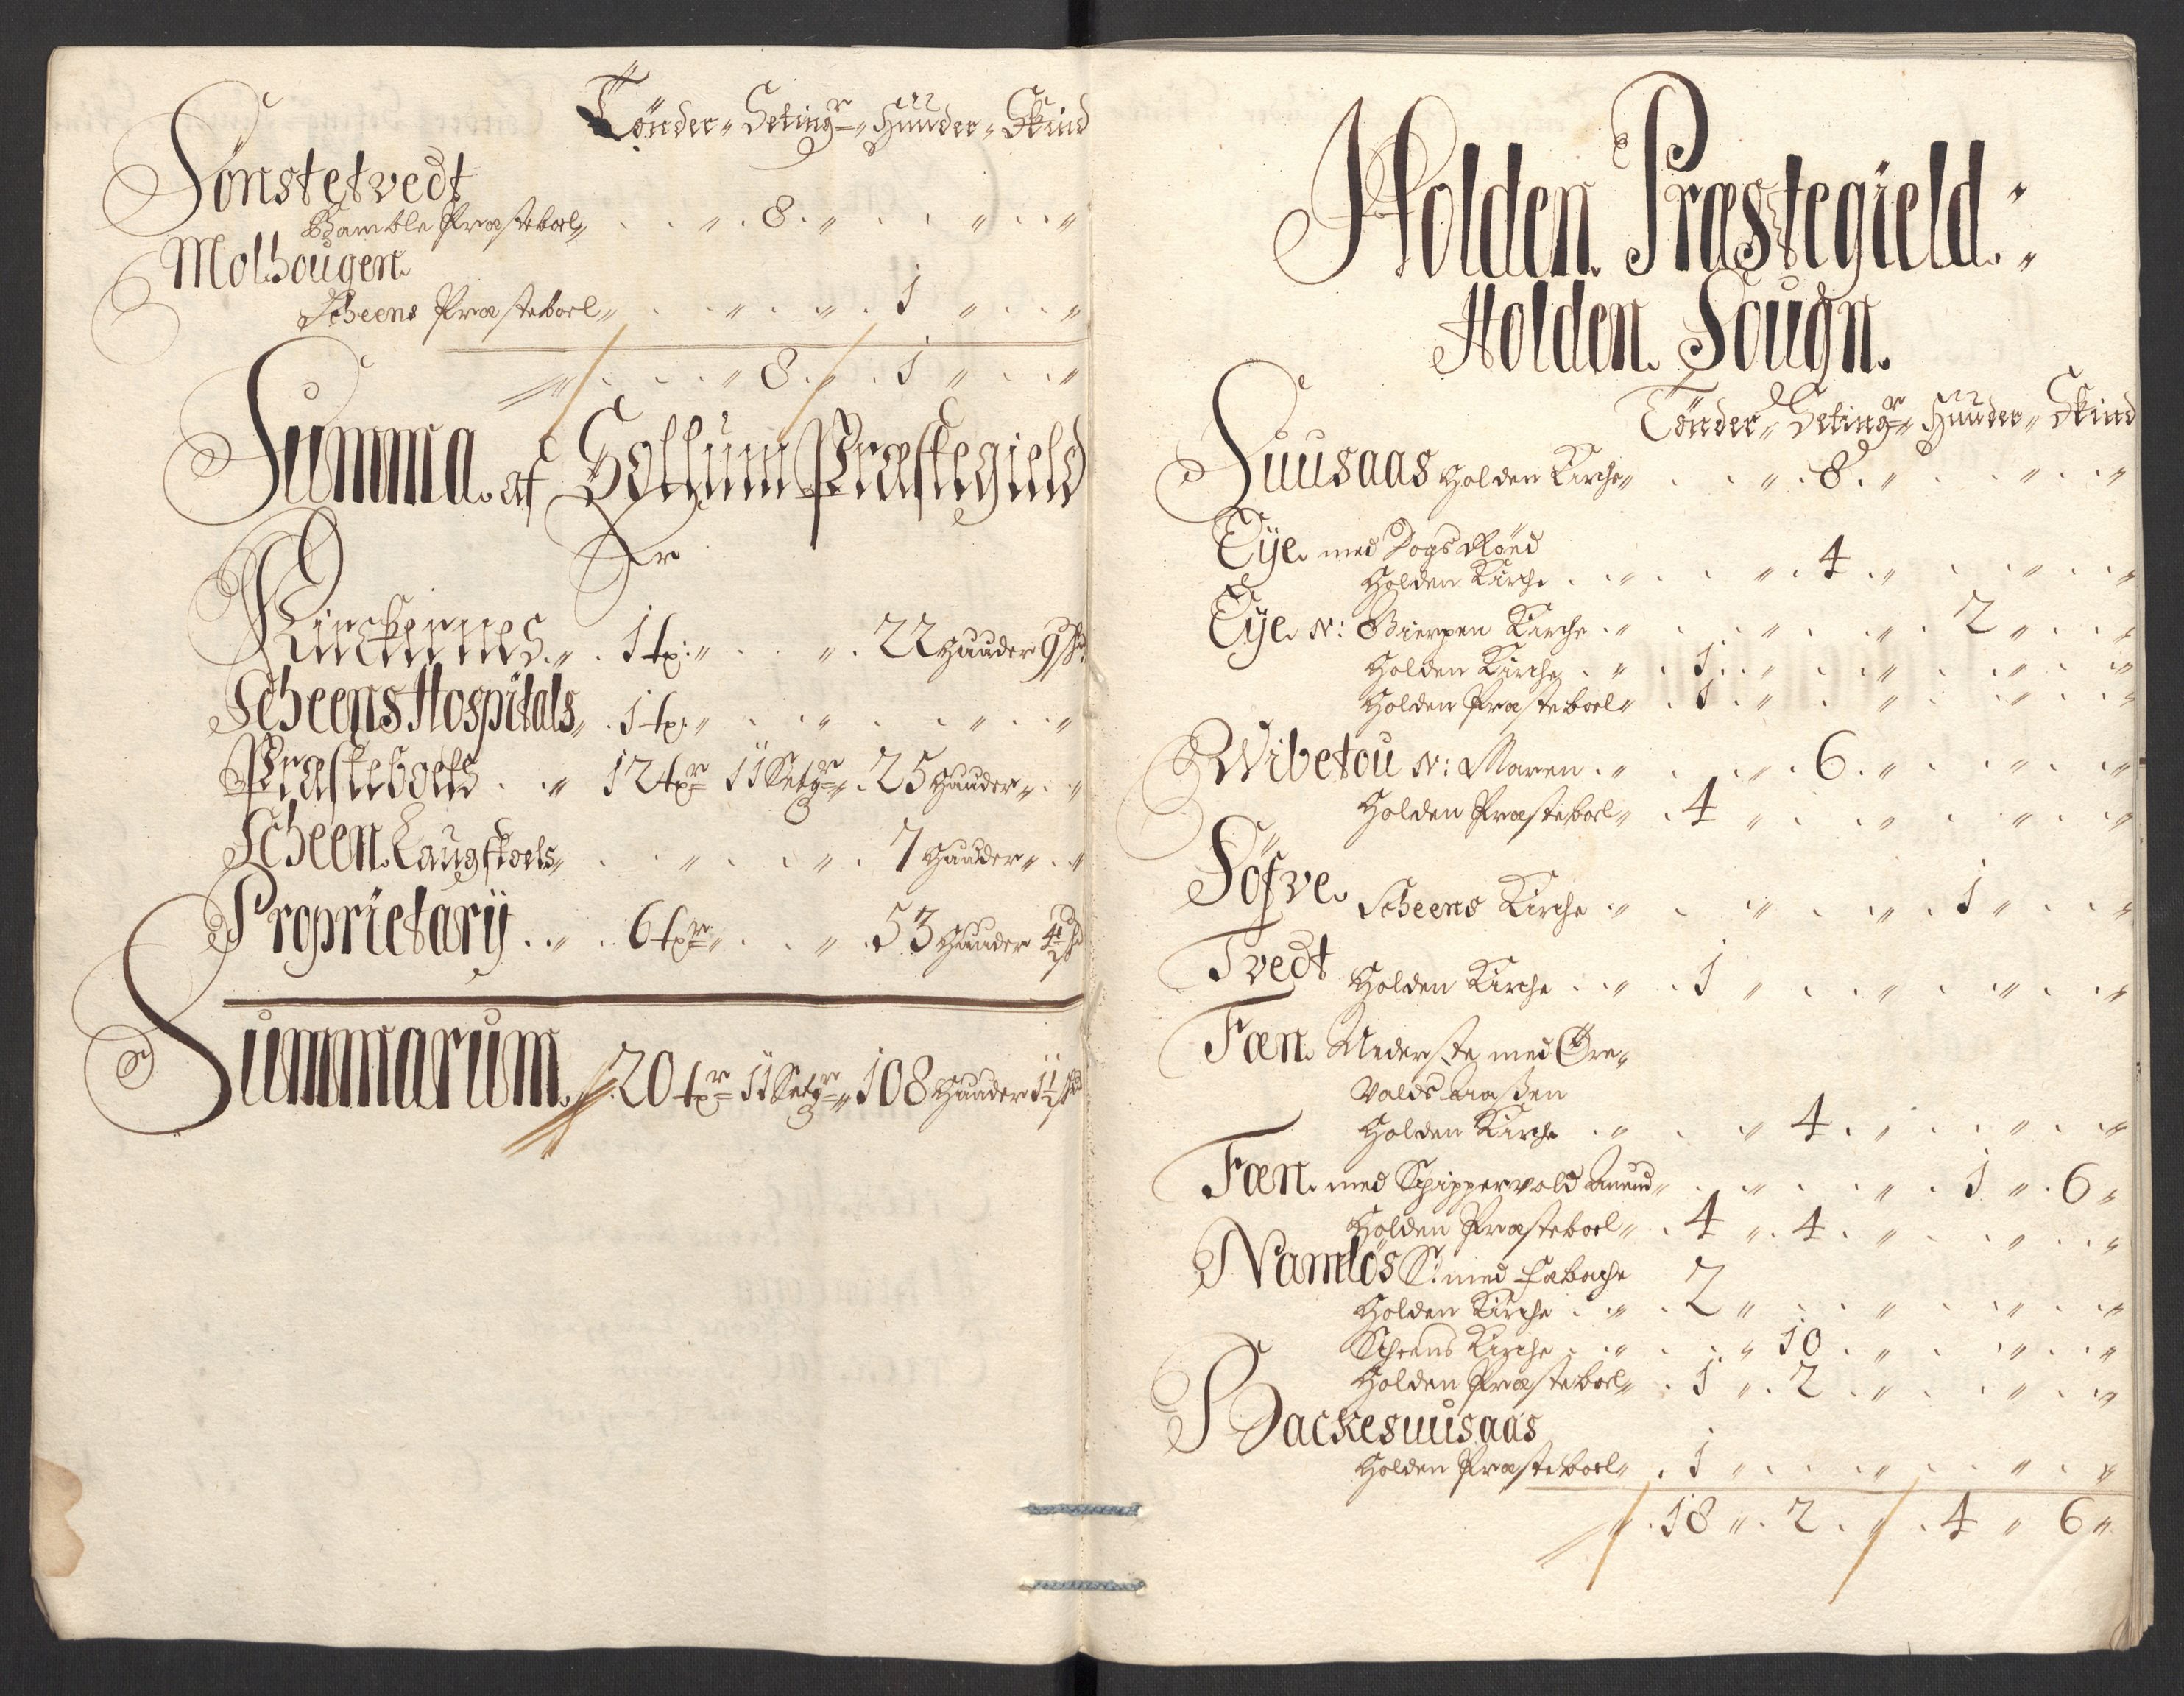 Tönder „ Seting̃r „ Huuder „ Skind
Sönstetvedt
Bamble Præsteboel „ . . „ . 8 . „ . . „ . . „
Molhougen.
Scheens Præsteboel „ . . „ . „ . 1 „ . . „
„ . . . „ 8 . „ . 1 „ . . „
Summa. af Sollum Præstegield
Er
Kirckernes. „ . 1 tꝑ: „ . . „ . 22 Huuder 9 sk:
Scheens Hospitals „ . 1 tꝑ: „ . . „ . . „ . . „
Præsteboels . . „ 12 tꝑr 11 Setgr „ . 25 Huuder „ . „
Scheen. Laugstoels „ . . „ . . „ . 7 Huuder „ . „
Proprietarij . . „ . 6 tꝑr „ . . „ . 53 Huuder 4½ sk
Summarum. „ 20 tꝑr 11 Setgr „ 108 Huuder 1½ sk
Holden. Præstegield. „
Holden. Sougn.
Tönder „ Seting̃r „ Huuder „ Skind
Suusaas Holden Kirche „ . . „ . 8 . „ . . „ . . „
Eÿe. med Dogs Röed
Holden Kirche . . „ . . „ . 4 . „ . . „ . . „
Eÿe. N: Gierpen Kirche . „ . . „ . . „ . 2 „ . . „
Holden Kirche . „ . 1 . „ . . „ . . „ . . „
Holden Præsteboel „ . 1 . „ . „ . . „ . . „
Wibetou N: Maren . „ . . „ . 6 . „ . . „ . . „
Holden Præsteboel „ . 4 „ . . „ . . „ . . „
Söfve. Scheens Kirche . „ . „ . . „ . 1 „ . . „
Tvedt Holden Kirche . „ . 1 „ . . „ . „ . . „
Fæn. Nederste med Øre„
Valds
Holden Kirche . „ . „ 4 . „ . . „ . . „
Fæn. med Schippervold Amund „ . „ . . „ . 1 „ . 6 „
Holden Præsteboel „ . 4 „ . 4 . „ . . „ . . „
Namlös S: med 2
Holden Kirche . „ . 2 „ . . „ . . „ . . „
Scheens Kirche . „ . . „ 10 . „ . . „ . . „
Holden Præsteboel „ . 1 „ . 2 . „ . . „ . . „
Backesuusaas
Holden Præsteboel „ . 1 „ . . „ . . „ . „
„ . 18 „ . 2 . „ . 4 „ 6 „